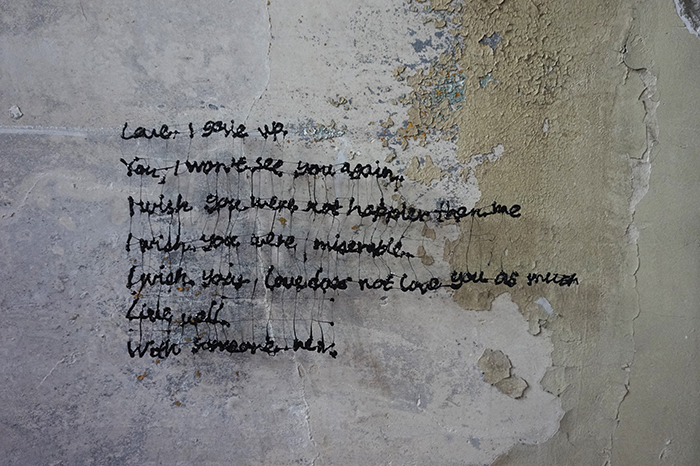 Love, I gave up.
You, I won't see you again.
I wish you were not happier than me
I wish you were miserable.
I wish your love does not love you as much
Live well.
With someone new.